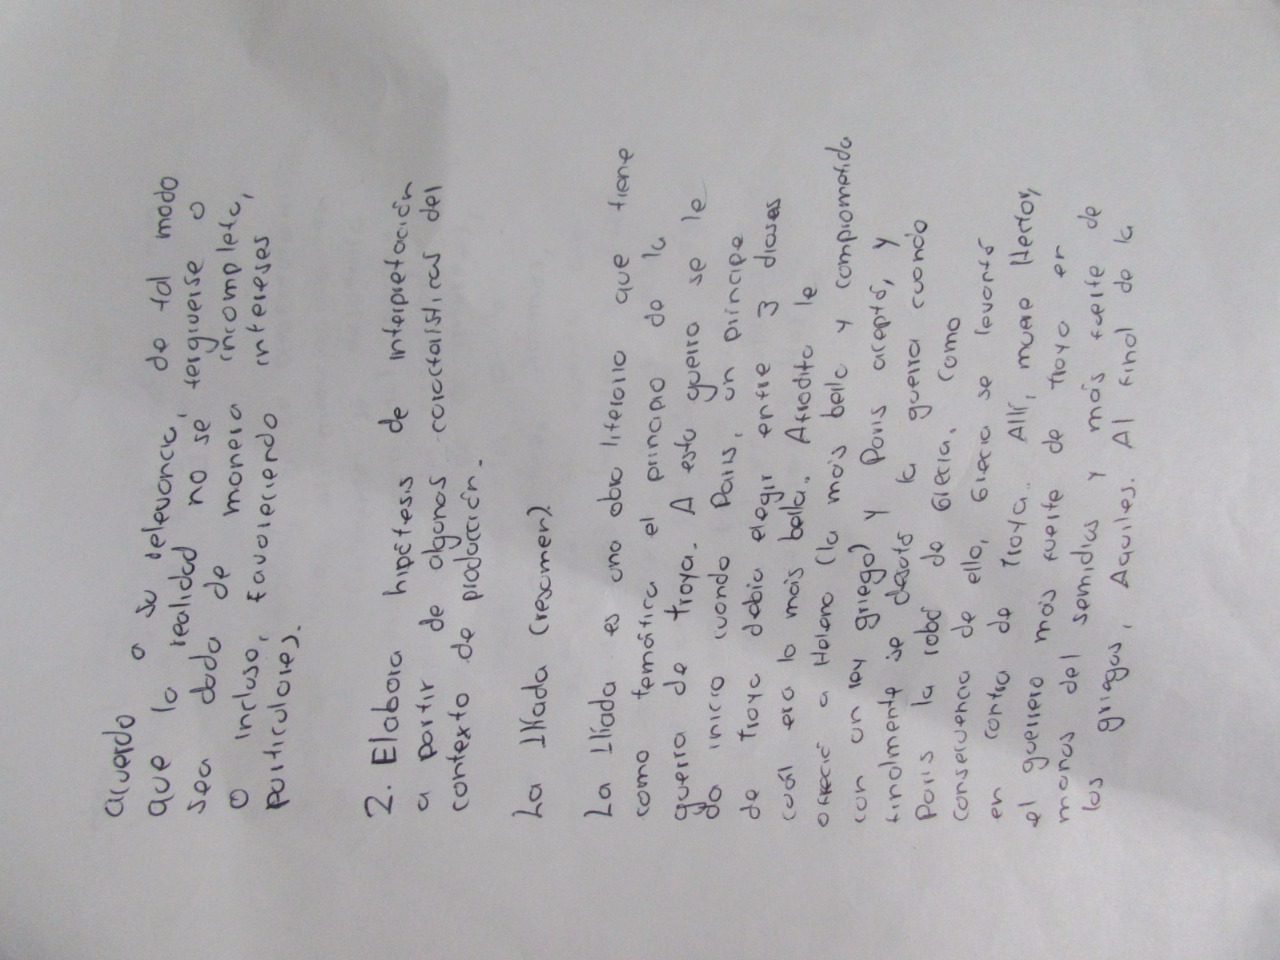 acuerdo a su relevancia, de tal modo
que la realidad no se tergiverse o
sea dada de manera incompleta,
o incluso, favoreciendo intereses
particulares.
2. Elabora hipótesis de interpretación
a partir de algunas características del
contexto de producción.
La Ilíada (resumen)
La Ilíada es una obra literaria que tiene
como temática el principio de la
guerra de troya. A esta guerra se le
da inicio cuando Paris, un príncipe
de troya debía elegir entre 3 diosas
cuál era la más bella. Afrodita le
ofreció a Helena (la más bella y comprometida
con un rey griego) y Paris aceptó, y
finalmente se desató la guerra cuando
Paris la robó de Grecia. Como
consecuencia de ello, Grecia se levantó
en contra de Troya. Allí, muere Hector,
el guerrero más fuerte de troya en
manos del semidios y más fuerte de
los griegos, Aquiles. Al final de la